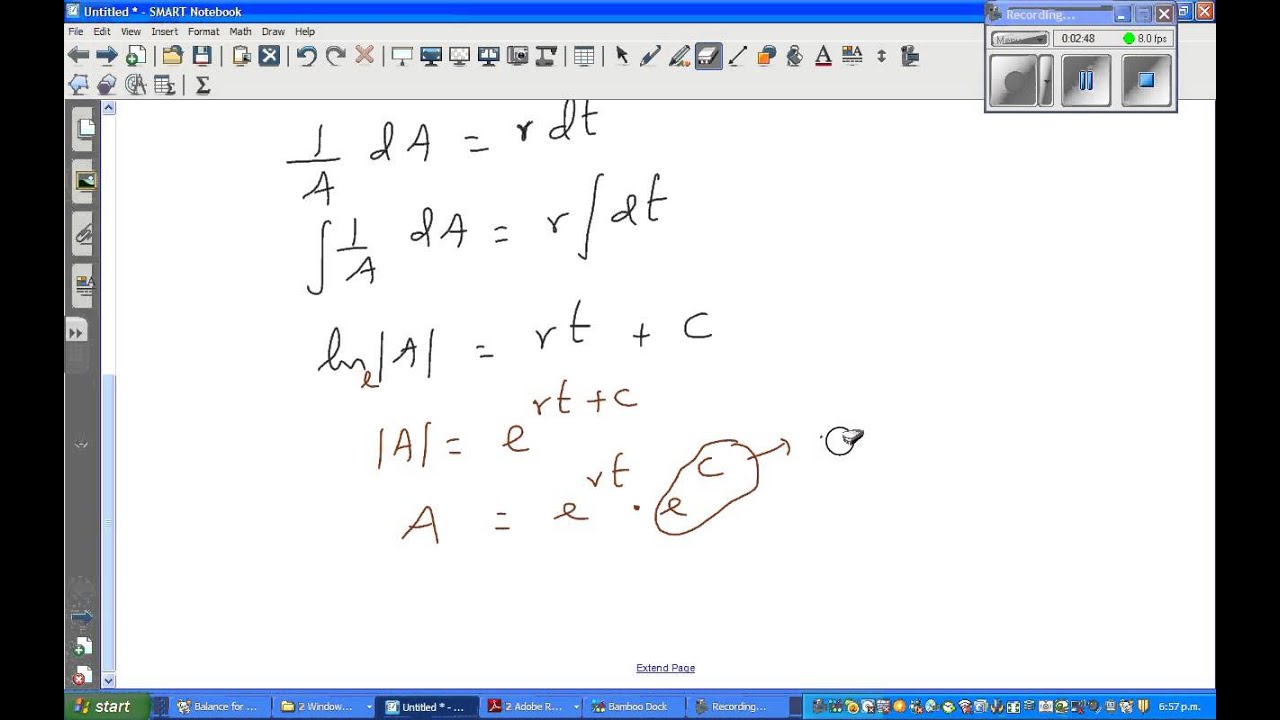 Untitled * - SMART Notebook
Recording...
File Edit View Insert Format Math Draw Help
Menu
0:02:48
8.0 fps
1/A dA = r dt
∫ 1/A dA = r ∫ dt
ln_e |A| = rt + C
|A| = e^(rt + C)
A = e^(rt) · e^C →
Extend Page
start
Balance for ...
2 Window...
Untitled * - ...
2 Adobe R...
Bamboo Dock
Recording...
6:57 p.m.